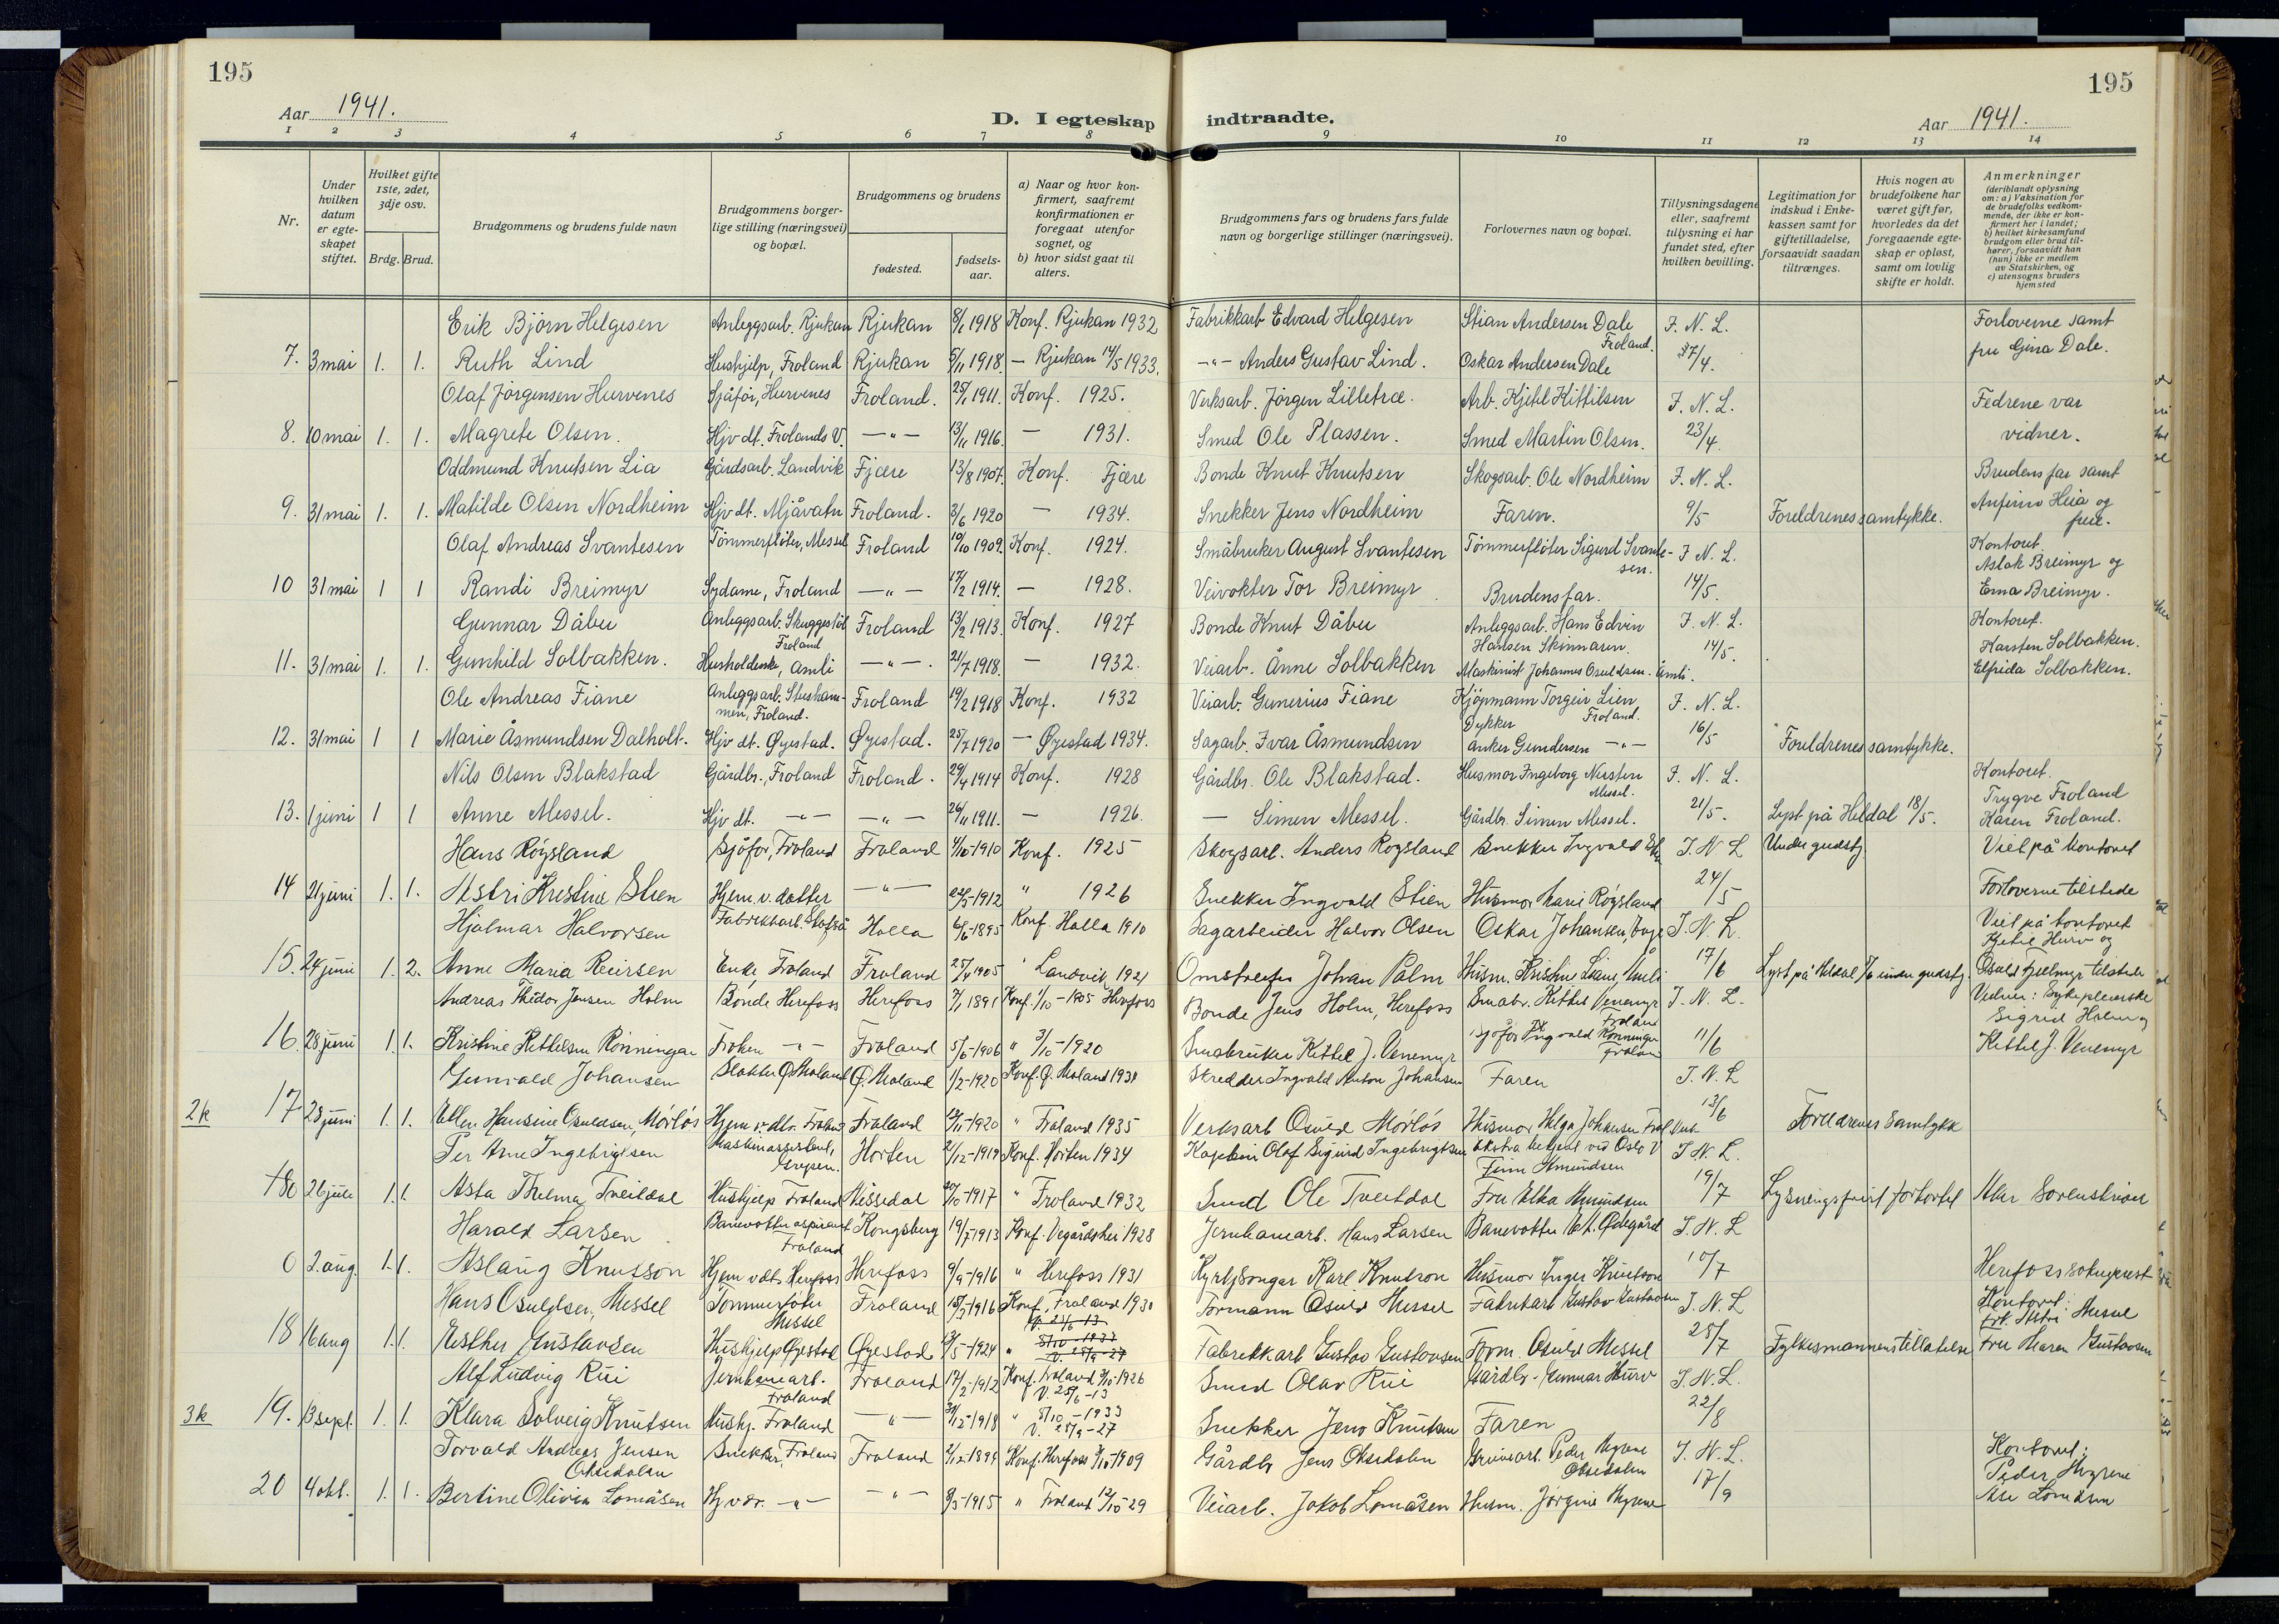 195
195
Aar 1941.
D. I egteskap indtraadte.
Aar 1941.
1 2 3 4 5 6 7 8 9 10 11 12 13 14
Nr.
Under hvilken datum er egte-skapet stiftet.
Hvilket gifte 1ste, 2det, 3dje osv.
Brdg. Brud.
Brudgommens og brudens fulde navn
Brudgommens borger-lige stilling (næringsvei) og bopæl.
Brudgommens og brudens
fødested.
fødsels-aar.
a) Naar og hvor kon-firmert, saafremt konfirmationen er foregaat utenfor sognet, og
b) hvor sidst gaat til alters.
Brudgommens fars og brudens fars fulde navn og borgerlige stillinger (næringsvei).
Forlovernes navn og bopæl.
Tillysningsdagene eller, saafremt tillysning ei har fundet sted, efter hvilken bevilling.
Legitimation for indskud i Enke-kassen samt for giftetilladelse, forsaavidt saadan tiltrænges.
Hvis nogen av brudefolkene har været gift før, hvorledes da det foregaaende egte-skap er opløst, samt om lovlig skifte er holdt.
Anmerkninger (deriblandt oplysning om: a) Vaksination for de brudefolks vedkom-mende, der ikke er kon-firmert her i landet; b) hvilket kirkesamfund brudgom eller brud til-hører, forsaavidt han (hun) ikke er medlem av Statskirken, og c) utensogns bruders hjemsted
Erik Bjørn Helgesen Anleggsarb. Rjukan Rjukan 8/1 1918 Konf. Rjukan 1932 Fabrikkarb Edvard Helgesen Stian Andersen Dale Froland. F. N. L. Forloverne samt
7. 3 mai 1. 1. Ruth Lind Hushjelp, Froland Rjukan 5/11 1918. — Rjukan 14/5 1933. -"- Anders Gustav Lind. Oskar Andersen Dale fru Gina Dale.
Olaf Jörgensen Hurvenes Sjåför, Hurvenes Froland. 25/1 1911. Konf. 1925. Verksarb. Jörgen Lilletræ. Arb. Kjetil Kittilsen F. N. L. Fedrene var
8. 10 mai 1. 1. Magrete Olsen. Hjv dt. Frolands V. —"— 13/11 1916. — 1931. Smed Ole Plassen. Smed Martin Olsen. 23/4. vidner.
Oddmund Knutsen Lia Gårdsarb. Landvik Fjære 13/8 1907. Konf. Fjære Bonde Knut Knutsen Skogsarb. Ole Nordheim F. N. L. Brudens far samt
9. 31 mai 1. 1. Matilde Olsen Nordheim Hjv dt. Mjåvatn Froland. 3/6 1920 — 1934. Snekker Jens Nordheim Faren. 9/5 Foreldrenes samtykke. Anfinn Heia og frue.
Olaf Andreas Svantesen Tømmerflöter, Messel Froland 10/10 1909. Konf. 1924. Småbruker August Svantesen Tömmerflöter Sigurd Svante-sen. F. N. L. Kontoret.
Aslak Breimyr og
10 31 mai 1 1 Randi Breimyr Sydame, Froland —"— 17/2 1914. — 1928. Veivokter Tor Breimyr Brudens far. 14/5. Erna Breimyr.
Gunnar Dåbu Anleggsarb. Skuggestöl Froland Froland 13/2 1913. Konf. 1927 Bonde Knut Dåbu Anleggsarb. Hans Edvin Hansen Skinnaren. F. N. L. Kontoret.
Karsten Solbakken.
11. 31 mai 1. 1. Gunhild Solbakken. Husholderske, Åmli —"—. 21/7 1918. — 1932. Veiarb. Ånne Solbakken Maskinist Johannes Osuldsen. Åmli. 14/5. Elfrida Solbakken.
Ole Andreas Fiane Anleggsarb. Froland. Froland 19/2 1918 Konf. 1932 Veiarb. Gunerius Fiane Kjöpmann Torgeir Lien Froland. F. N. L.
12. 31 mai 1 1 Marie Åsmundsen Dalholt. Hjv dt. Øyestad. Øyestad. 25/7 1920 — Øyestad 1934. Sagarb. Ivar Åsmundsen Dykker Anker Gundersen —"— 16/5 Foreldrenes samtykke.
Nils Olsen Blakstad Gårdbr., Froland Froland. 29/4 1914 Konf. 1928 Gårdbr. Ole Blakstad. Husmor Ingeborg Nersten Messel. F. N. L. Kontoret.
Trygve Froland
13. 1 juni 1 1 Anne Messel. Hjv dt. —"— —"— 26/11 1911. — 1926. — Simen Messel. Gårdbr. Simen Messel. 21/5. Lyst på Heldal 18/5. Karen Froland.
Hans Röysland Sjåför, Froland Froland 4/10-1910 Konf. 1925 Skogsarb. Anders Røysland Snekker Ingvald Stien I. N L Under gudstj. Viet på kontoret
14 21 juni 1. 1. Astri Kristine Stien Hjem. v. datter —"— 22/5-1912 " 1926 Snekker Ingvald Stien Husmor Marie Röysland 24/5 Forloverne tilstede
Hjalmar Halvorsen Fabrikkarb. Holla 6/6-1895 Konf Holla 1910 Sagarbeider Halvor Olsen Oskar Johansen, I. N. L. Viet på kontoret
Kjetil Hurv og
15. 24 juni 1. 2. Anne Maria Reiersen Enke Froland Froland 25/4 1905 " Landvik 1921 Omstreifer Johan Palm Husm. Kristine Liane, Åmli 17/6 Lyst på Heldal under gudstj. Osuld Fjellmyr tilstede
Andreas Theodor Jensen Holm Bonde Herefoss Herefoss 7/1 1891 Konf. 1/10-1905 Herefoss Bonde Jens Holm, Herefoss Småbr. Kittel Venemyr Froland I. N. L. Vidner: Sykepleierske
Sigrid Holm og
16. 28 juni 1. 1. Kristine Kittelsen Rönningen Fröken —"— Froland 5/6-1906 " 3/10-1920 Småbruker Kittel J. Venemyr Sjåför Ingvald Rönningen Froland 11/6 Kittel J. Venemyr
Gunvald Johansen Slakter Ø. Moland Ø. Moland 1/2-1920 Konf. Ø. Moland 193 Skredder Ingvald Anton Johansen Faren I. N. L
2k 17 28 juni 1. 1. Ellen Hansine Osuldsen, Mörlös Hjem v. dtr. Froland Froland 12/11-1920 " Froland 1935 Verksarb Osuld Mörlös Husmor Helga Johansen 13/6 Foreldrenes samtykk
Per Arne Ingebrigtsen Maskinassistent, Horten 21/12-1919 Konf. Horten 1934 Kaptein Olaf Sigurd Ingebrigtsen Ekstra betjent ved Oslo V Finn Amundsen I N L.
18 0 26 juli 1. 1. Asta Thelma Tveitdal Hushjelp Froland Hissedal 20/10-1917 " Froland 1932 Smed Ole Tveitdal Fru Elka Amundsen 19/7 Lysningsfrist forkortet Aker Sorenskriveri
Harald Larsen Banevokteraspirant Froland Kongsberg 19/7-1913 Konf. Vegårdshei 1928 Jernbanearb. Hans Larsen Banevokter Ødegård I. N. L
0 2. aug. 1. 1. Aslaug Knutson Hjem v dt. Herefoss Herefoss 9/9-1916 " Herefoss 1931 Kyrkjsongar Karl Knutson Husmor Inger Knutson 10/7 Herefoss sokneprest
Hans Osuldsen, Messel Tømmerfløter Messel Froland 15/7-1916 Konf. Froland 1930 Formann Osuld Messel Fabrikarb Gustav Gustavsen I. N. L Kontoret:
frk. Astri Messel
18 16 aug 1. 1. Esther Gustavsen Hushjelp Øyestad Øyestad /5-1924 " Fabrikkarb Gustav Gustavsen Form. Osuld Messel 25/7 Fylkesmannens tillatelse Fru Maren Gustavsen
Alf Ludvig Rui Jernbanearb. Froland Froland 17/2-1912 Konf. Froland /10-1926 V. 25/6-13 Smed Olav Rui Gårdbr. Gunnar Hurv I. N. L.
3k 19. 13 sept. 1. 1. Klara Solveig Knutsen Hushj. Froland —"— 30/12-1918 " 8/10-1933 V. 25/9-27 Snekker Jens Knutsen Faren 22/8
Torvald Andreas Jensen Oksedalen Snekker, Froland Froland 2/12-1894 Konf. Herefoss 3/10-1909 Gårdbr Jens Oksedalen Gruvearb. Peder Myrene Oksedalen I. N. L. Kontoret:
Peder Myrene
20 4 okt. 1. 1. Bertine Olivia Lomåsen Hj. v. dr. —"— —"— 8/3-1915 " Froland 12/10-29 Veiarb. Jakob Lomåsen Husm. Jörgine Myrene 17/9 Åse Lomåsen